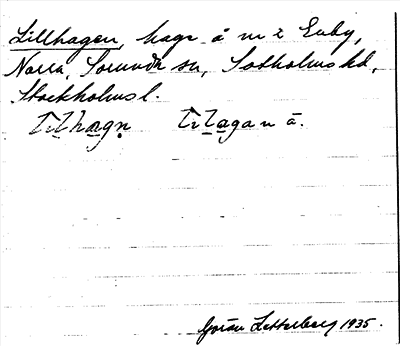 Lillhagen, hage å m i Enby,
Norra, Sorunda sn, Sotholms hd,
Stockholms l.
Lilhagn Lilagan ä.
Göran Zetterberg 1935.